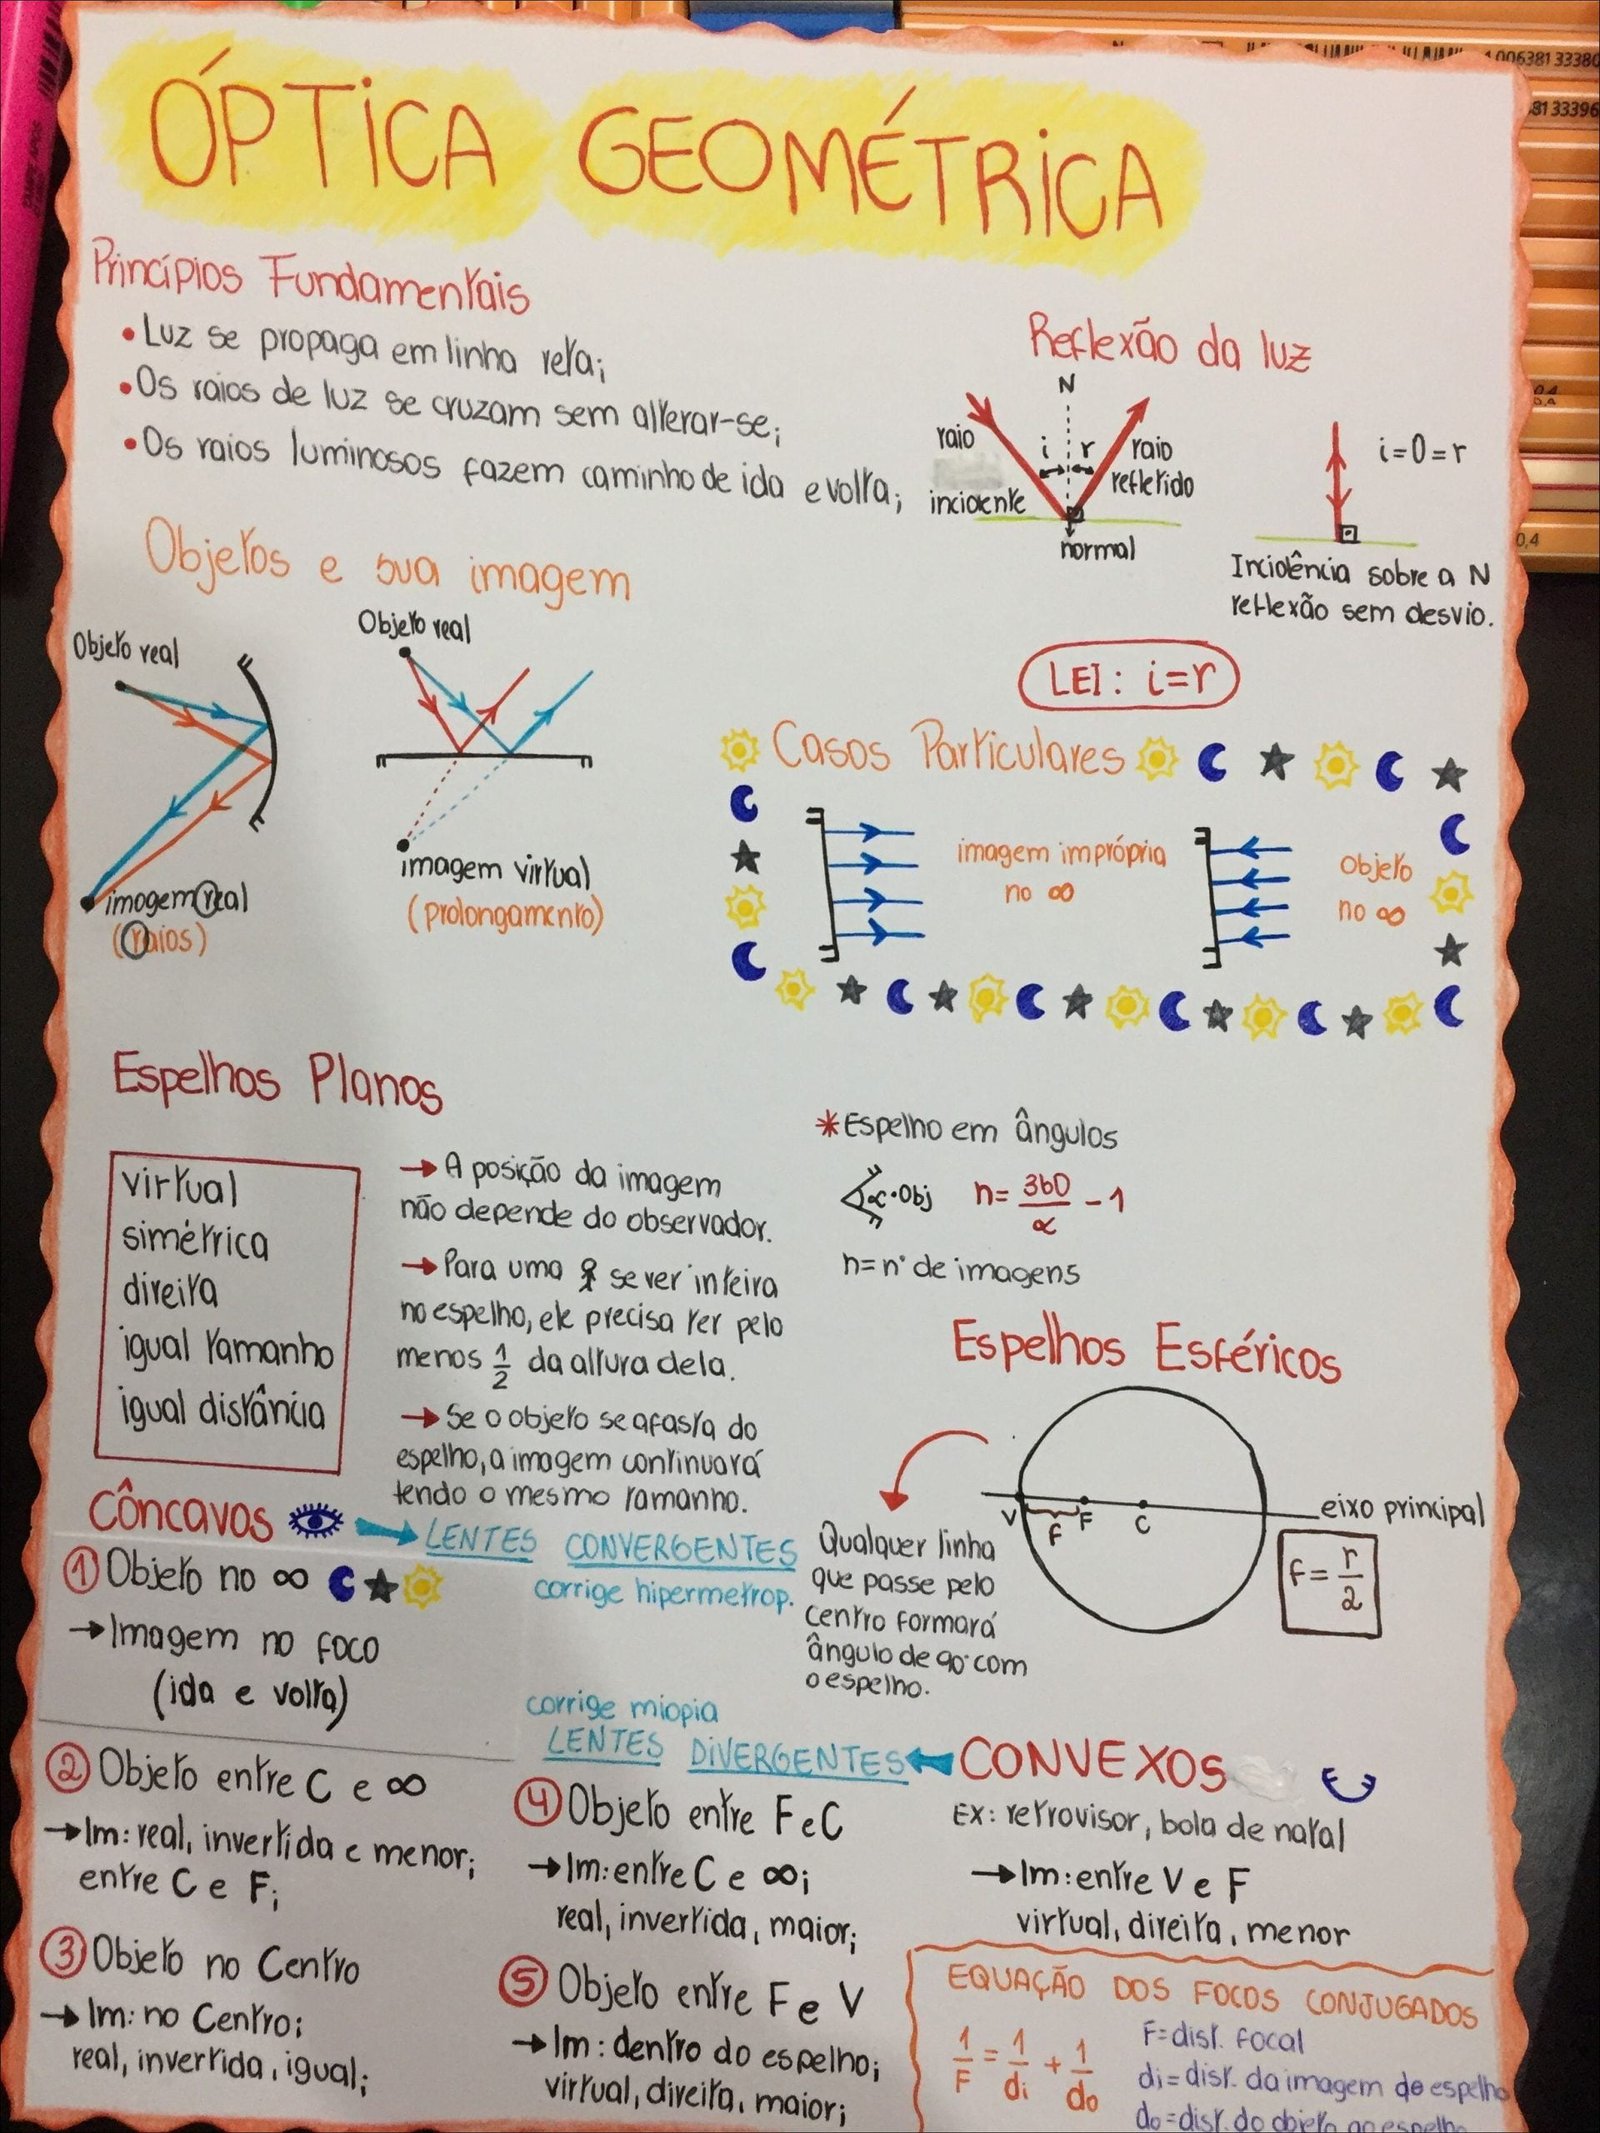 ÓPTICA GEOMÉTRICA
Princípios Fundamentais
• Luz se propaga em linha reta;
• Os raios de luz se cruzam sem alterar-se;
• Os raios luminosos fazem caminho de ida e volta;
Reflexão da luz
N
raio
incidente
i r
raio
refletido
normal
i=0=r
Incidência sobre a N
reflexão sem desvio.
LEI: i=r
Objetos e sua imagem
Objeto real
imagem real
(raios)
Objeto real
imagem virtual
(prolongamento)
Casos Particulares
imagem imprópria
no ∞
objeto
no ∞
Espelhos Planos
virtual
simétrica
direita
igual tamanho
igual distância
→ A posição da imagem
não depende do observador.
→ Para uma se ver inteira
no espelho, ele precisa ter pelo
menos 1/2 da altura dela.
→ Se o objeto se afasta do
espelho, a imagem continuará
tendo o mesmo tamanho.
* Espelho em ângulos
α •Obj n= 360/α - 1
n= n° de imagens
Espelhos Esféricos
V f F C
eixo principal
f= r/2
Qualquer linha
que passe pelo
centro formará
ângulo de 90° com
o espelho.
Côncavos → LENTES CONVERGENTES
corrige hipermetrop.
① Objeto no ∞
→ Imagem no foco
(ida e volta)
② Objeto entre C e ∞
→ Im: real, invertida e menor;
entre C e F;
③ Objeto no Centro
→ Im: no Centro;
real, invertida, igual;
④ Objeto entre F e C
→ Im: entre C e ∞;
real, invertida, maior;
⑤ Objeto entre F e V
→ Im: dentro do espelho;
virtual, direita, maior;
corrige miopia
LENTES DIVERGENTES ← CONVEXOS
Ex: retrovisor, bola de natal
→ Im: entre V e F
virtual, direita, menor
EQUAÇÃO DOS FOCOS CONJUGADOS
1/F = 1/di + 1/do
F= dist. focal
di= dist. da imagem do espelho
do= dist. do objeto ao espelho
00638133380
8133396
0,4
0,4